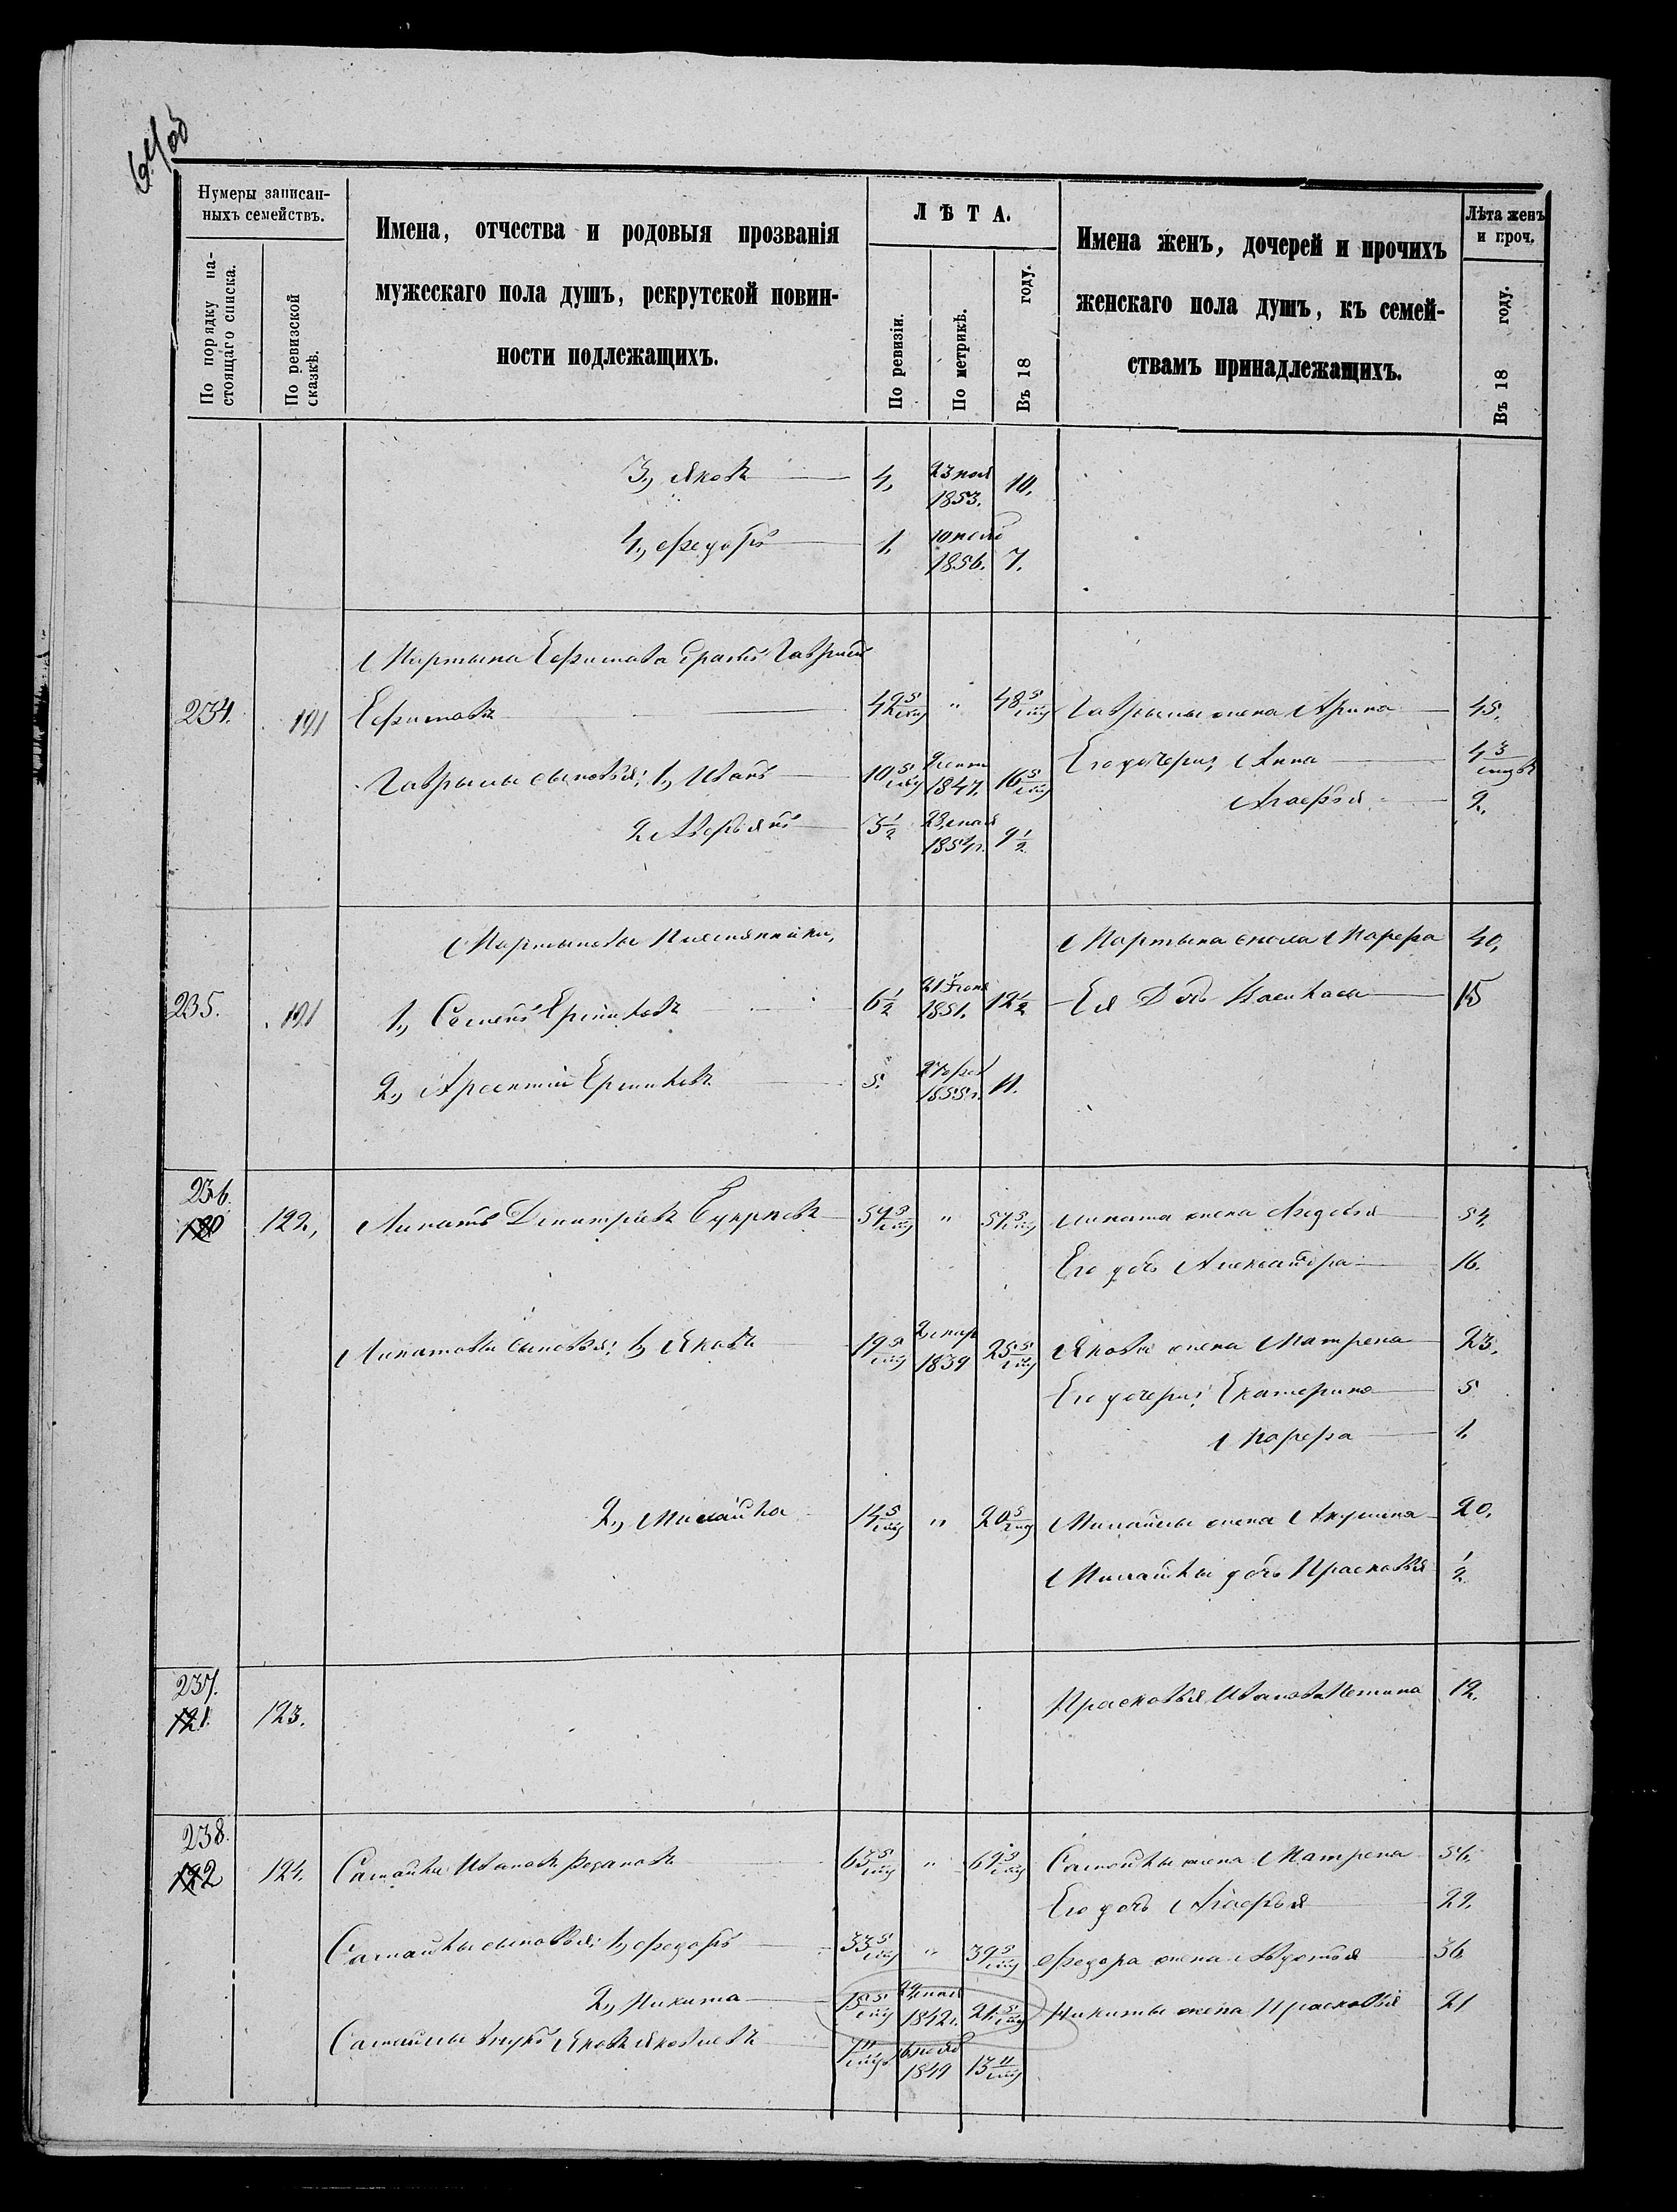 64 об
Нумеры записан-
ныхъ семействъ.
По порядку на-
стоящаго списка.
По ревизской
сказкѣ.
Имена, отчества и родовыя прозванія
мужескаго пола душъ, рекрутской повин-
ности подлежащихъ.
ЛѢТА.
По ревизіи.
По метрикѣ.
Въ 18 году.
Имена женъ, дочерей и прочихъ
женскаго пола душъ, къ семей-
ствамъ принадлежащихъ.
Лѣта женъ
и проч.
Въ 18 году.
3., Яковъ 4, 23 ноя 1853. 10.
4., Федоръ 1. 10 нояб 1856. 7.
Мартына Ефимова братъ Гаврило
234. 191 Ефимовъ " 48 5/мѣс Гаврилы жена Арина 45.
Гаврилы сыновья: 1, Иванъ 10 5/мѣс 1847. 16 5/мѣс Его дочери, Анна 4 3/мѣс
Агафья 2.
2 Аверьянъ 3 1/2 1854г. 9 1/2
Мартыновы племянники, Мартына жена Марфа 40,
235. 191 1., Семенъ Ермиловъ 6 1/2 21 1851. 12 1/2 Ея дочь 15
2., Арсентій Ермиловъ 5. 1855г. 11.
236.
120 122, Липатъ Дмитріевъ " 57 5/мѣс Липата жена Авдотья 54,
Его дочь Александра 16.
Липатовы сыновья: 1, Яковъ 19 5/мѣс 1839 25 5/мѣс Якова жена Матрена 23,
Его дочери: Екатерина 5
Марфа 1.
2., Михайла 14 5/мѣс " 20 5/мѣс Михайлы жена Акулина 20.
Михайлы дочь Прасковья 1/2
237.
121. 123. Прасковья Иванова 12.
238.
122 124. Самойла Ивановъ 63 5/мѣс " 69 5/мѣс Самойлы жена Матрена 54.
Его дочь Агафья 22.
Самойлы сыновья: 1, Федоръ 33 5/мѣс " 39 5/мѣс Федора жена Авдотья 36
2., Никита 15 5/мѣс 1842г. 21 5/мѣс Никиты жена Прасковья 21
Самойлы внукъ Яковъ Яковлевъ 7 11/мѣс 1849 13 11/мѣс